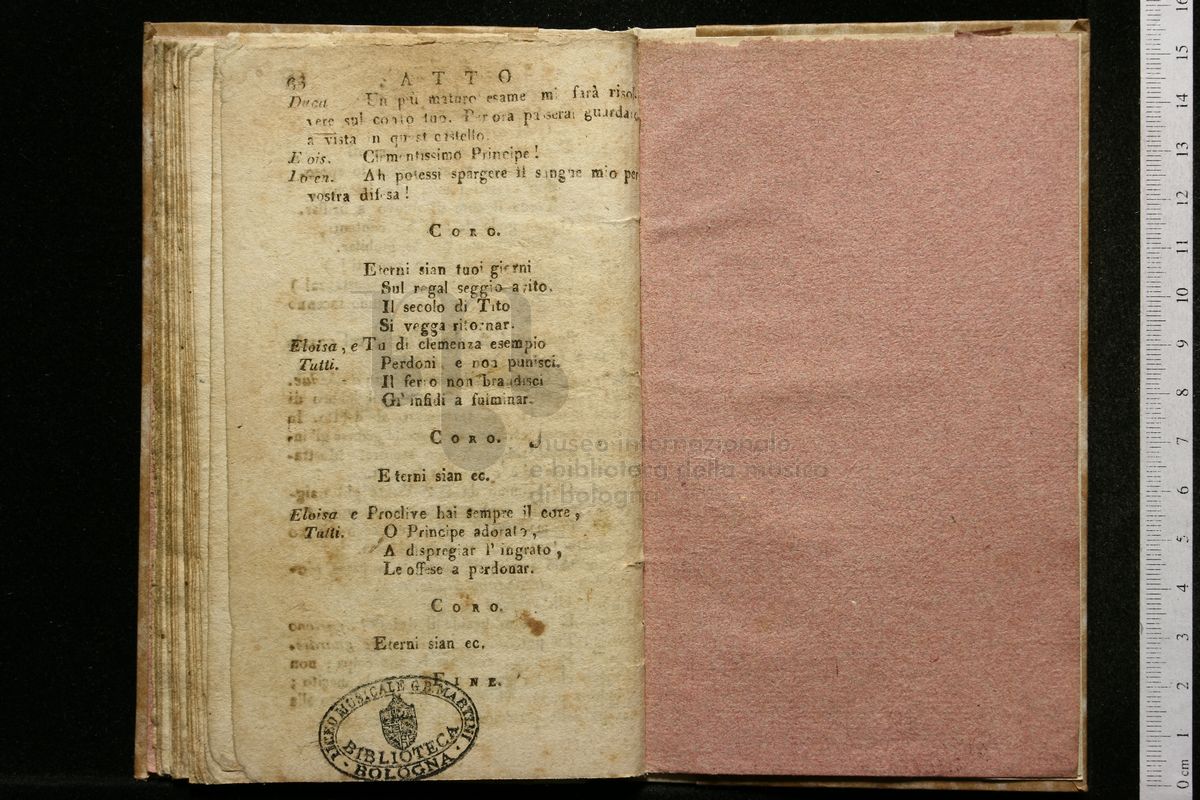 68 ATTO
Duca Un più maturo esame mi farà risol-
vere sul conto tuo. Per ora paserai guardato
a vista in quest castello.
Elois. Clementissimo Principe!
Loren. Ah potessi spargere il sangue mio per
vostra difesa!
CORO.
Eterni sian tuoi giorni
Sul regal seggio avito.
Il secolo di Tito
Si vegga ritornar.
Eloisa, e Tu di clemenza esempio
Tutti. Perdoni e non punisci.
Il ferro non brandisci
Gl' infidi a fulminar.
CORO.
Eterni sian ec.
Eloisa e Proclive hai sempre il core,
Tutti. O Principe adorato,
A dispregiar l' ingrato,
Le offese a perdonar.
CORO.
Eterni sian ec.
FINE.
LICEO MUSICALE G.B. MARTINI
BIBLIOTECA
· BOLOGNA ·
museo internazionale
e biblioteca della musica
di bologna
0 cm 1 2 3 4 5 6 7 8 9 10 11 12 13 14 15 16